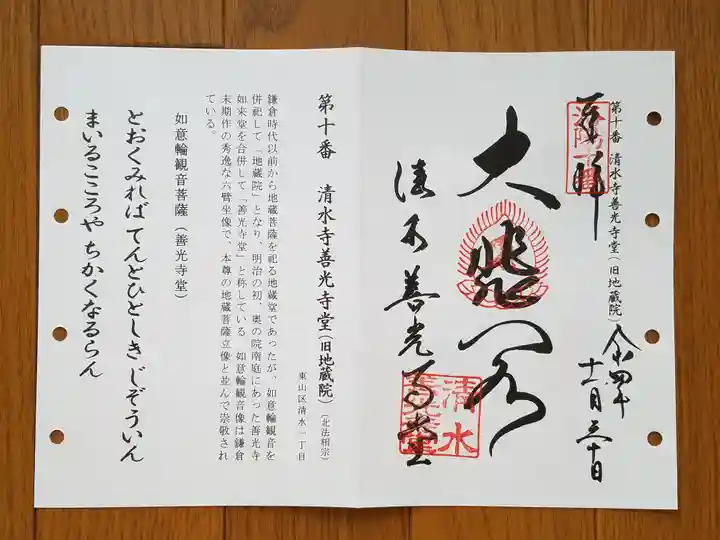 第十番 清水寺善光寺堂(旧地蔵院)
奉拝
令和四年
十一月三十日
大悲閣
清水善光寺堂
清水
第十番 清水寺善光寺堂(旧地蔵院)(北法相宗)
東山区清水一丁目
鎌倉時代以前から地蔵菩薩を祀る地蔵堂であったが、如意輪観音を
併祀して「地蔵院」となり、明治の初、奥の院南庭にあった善光寺
如来堂を合併して「善光寺堂」と称している。如意輪観音像は鎌倉
末期作の秀逸な六臂坐像で、本尊の地蔵菩薩立像と並んで崇敬され
ている。
如意輪観音菩薩(善光寺堂)
とおくみれば てんとひとしき じぞういん
まいるこころや ちかくなるらん